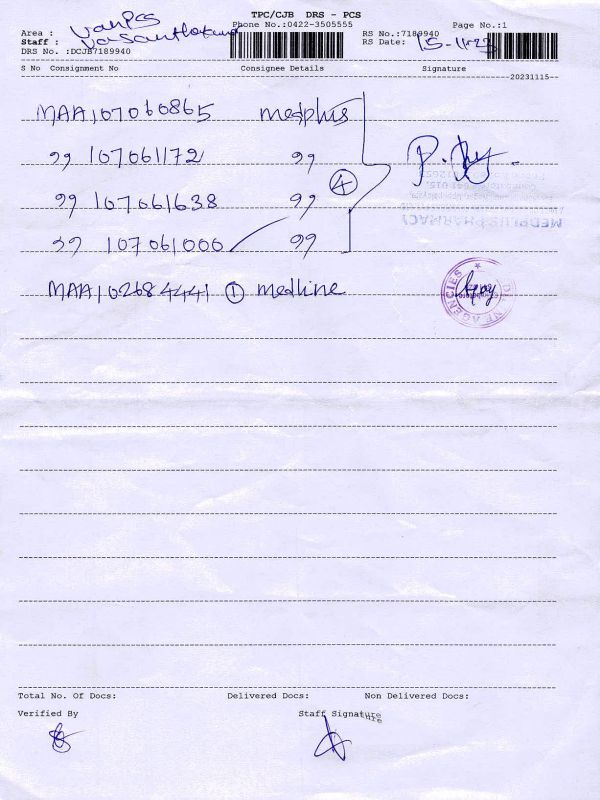 TPC/CJB DRS - PCS
Phone No.:0422-3505555 Page No.:1
Area : vanpcs
Staff :
DRS No. :DCJB7189940
RS No.:7189940
RS Date: 15-11-23
S No Consignment No Consignee Details Signature
20231115--
MAA107060865 medplus
99 107061172 99
99 107061638 99
4
99 107061000 99
MAA102684441 1 medline
MEDPLUS PHARMACY
AGENCIES
Total No. Of Docs: Delivered Docs: Non Delivered Docs:
Verified By Staff Signature